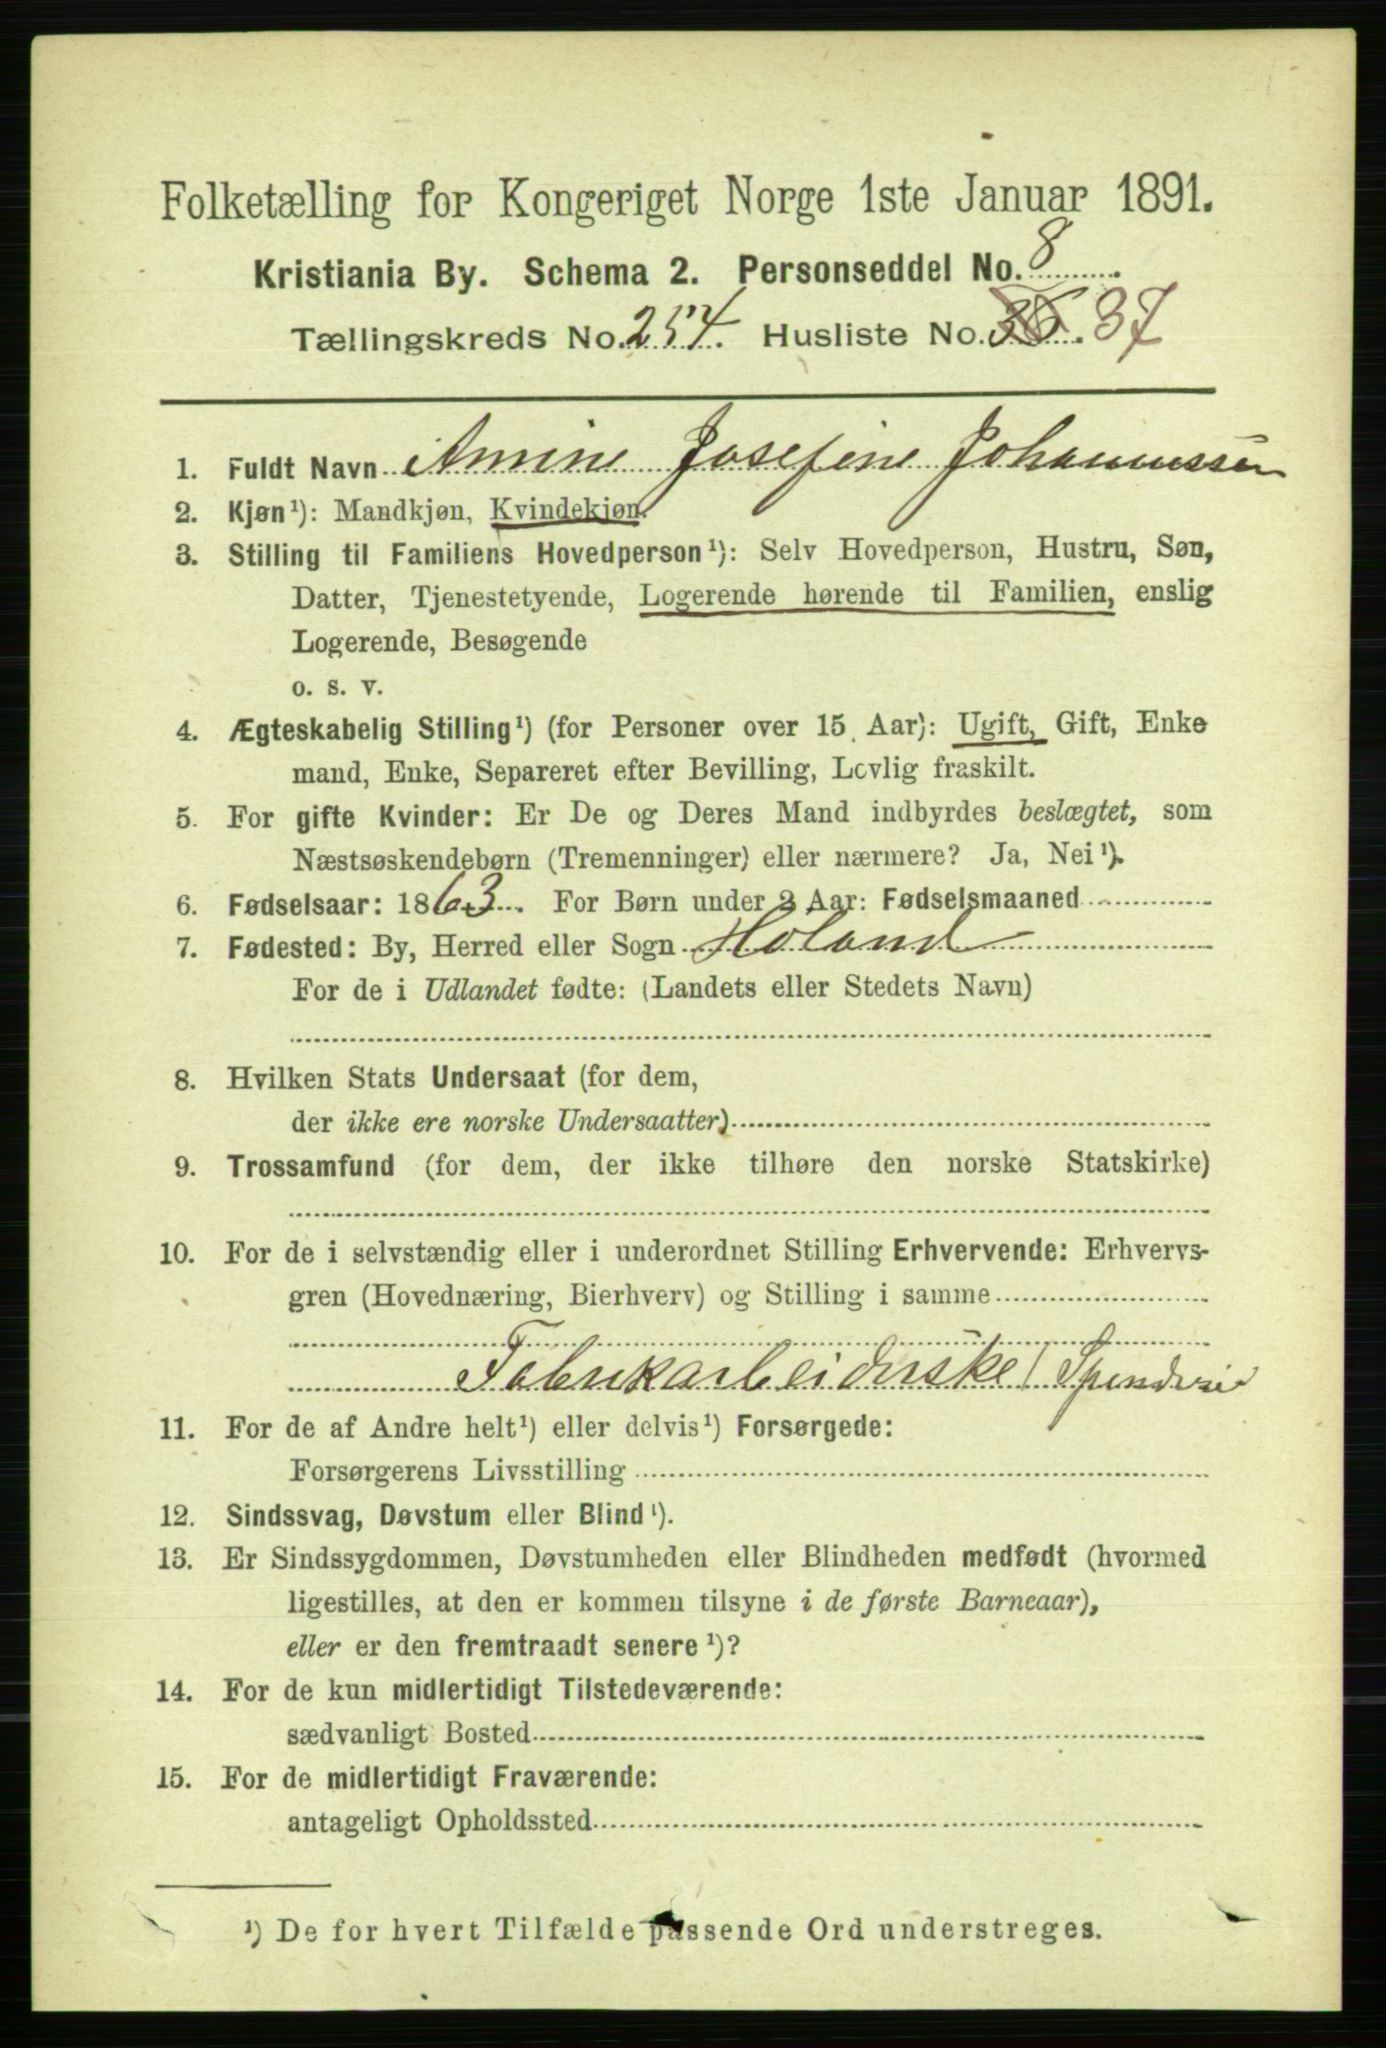 Folketælling for Kongeriget Norge 1ste Januar 1891.
Kristiania By. Schema 2. Personseddel No. 8
Tællingskreds No. 254. Husliste No. 36. 37
1. Fuldt Navn Amine Josefine Johannessen
2. Kjøn¹): Mandkjøn, Kvindekjøn.
3. Stilling til Familiens Hovedperson¹): Selv Hovedperson, Hustru, Søn,
Datter, Tjenestetyende, Logerende hørende til Familien, enslig
Logerende, Besøgende
o. s. v.
4. Ægteskabelig Stilling¹) (for Personer over 15 Aar): Ugift, Gift, Enke
mand, Enke, Separeret efter Bevilling, Lovlig fraskilt.
5. For gifte Kvinder: Er De og Deres Mand indbyrdes beslægtet, som
Næstsøskendebørn (Tremenninger) eller nærmere? Ja, Nei¹).
6. Fødselsaar: 1863. For Børn under 2 Aar: Fødselsmaaned
7. Fødested: By, Herred eller Sogn Høland
For de i Udlandet fødte: (Landets eller Stedets Navn)
8. Hvilken Stats Undersaat (for dem,
der ikke ere norske Undersaatter)
9. Trossamfund (for dem, der ikke tilhøre den norske Statskirke)
10. For de i selvstændig eller i underordnet Stilling Erhvervende: Erhvervs-
gren (Hovednæring, Bierhverv) og Stilling i samme
Fabrikarbeiderske / Spinderie
11. For de af Andre helt¹) eller delvis¹) Forsørgede:
Forsørgerens Livsstilling
12. Sindssvag, Døvstum eller Blind¹).
13. Er Sindssygdommen, Døvstumheden eller Blindheden medfødt (hvormed
ligestilles, at den er kommen tilsyne i de første Barneaar),
eller er den fremtraadt senere¹)?
14. For de kun midlertidigt Tilstedeværende:
sædvanligt Bosted
15. For de midlertidigt Fraværende:
antageligt Opholdssted
¹) De for hvert Tilfælde passende Ord understreges.